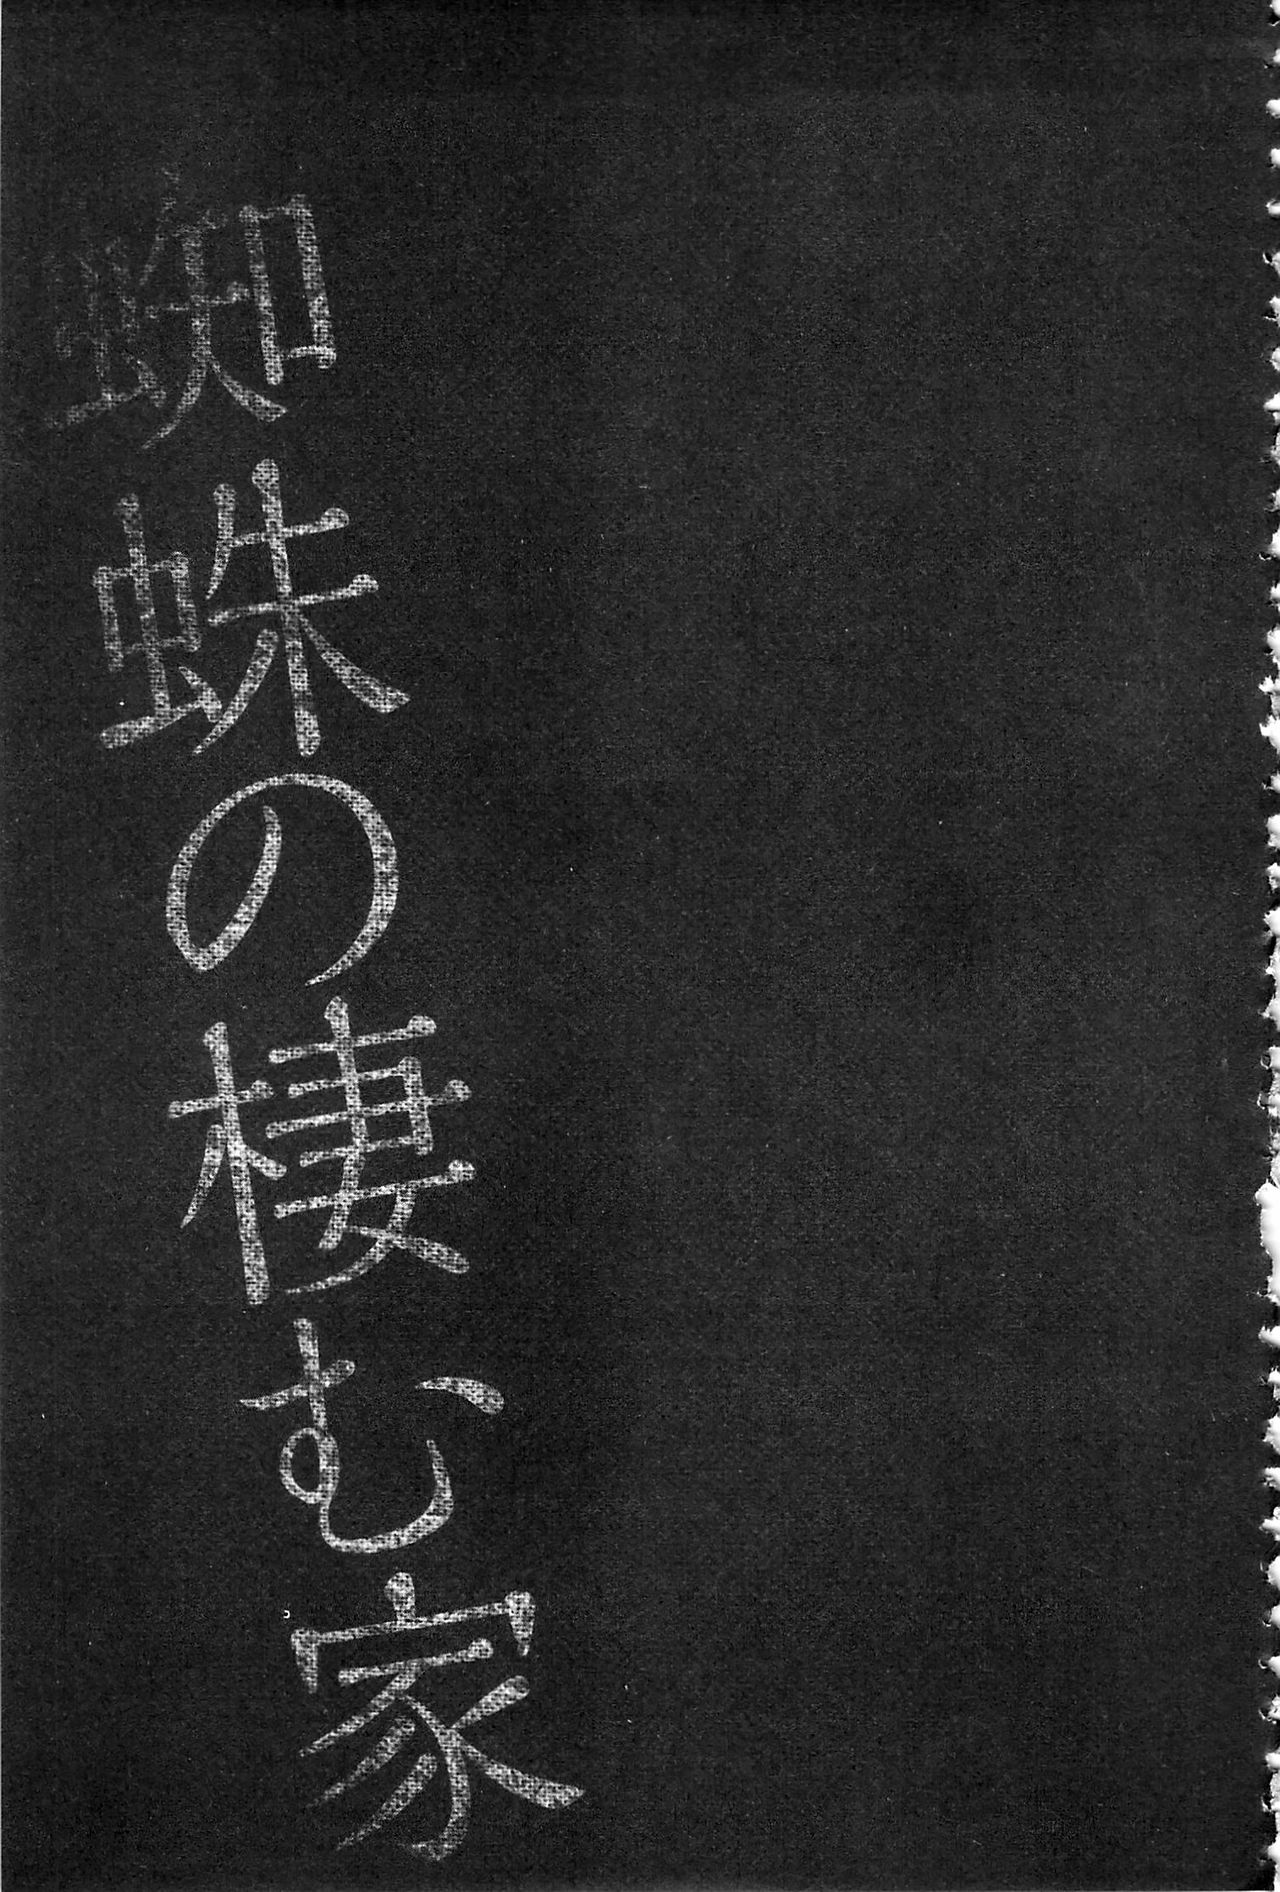 蜘蛛の棲む家